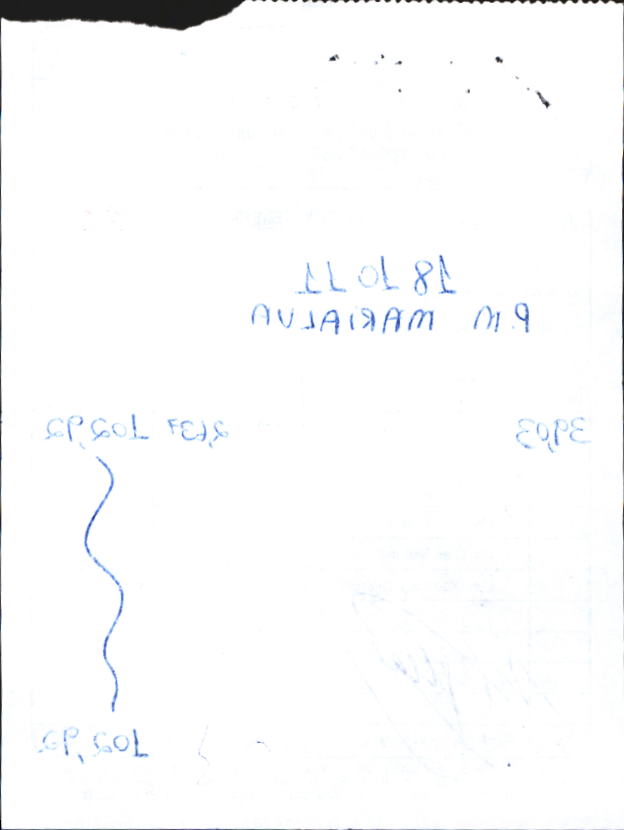 18 10 11
P.M MARIALVA
39,03 2,637 102,92
102,92